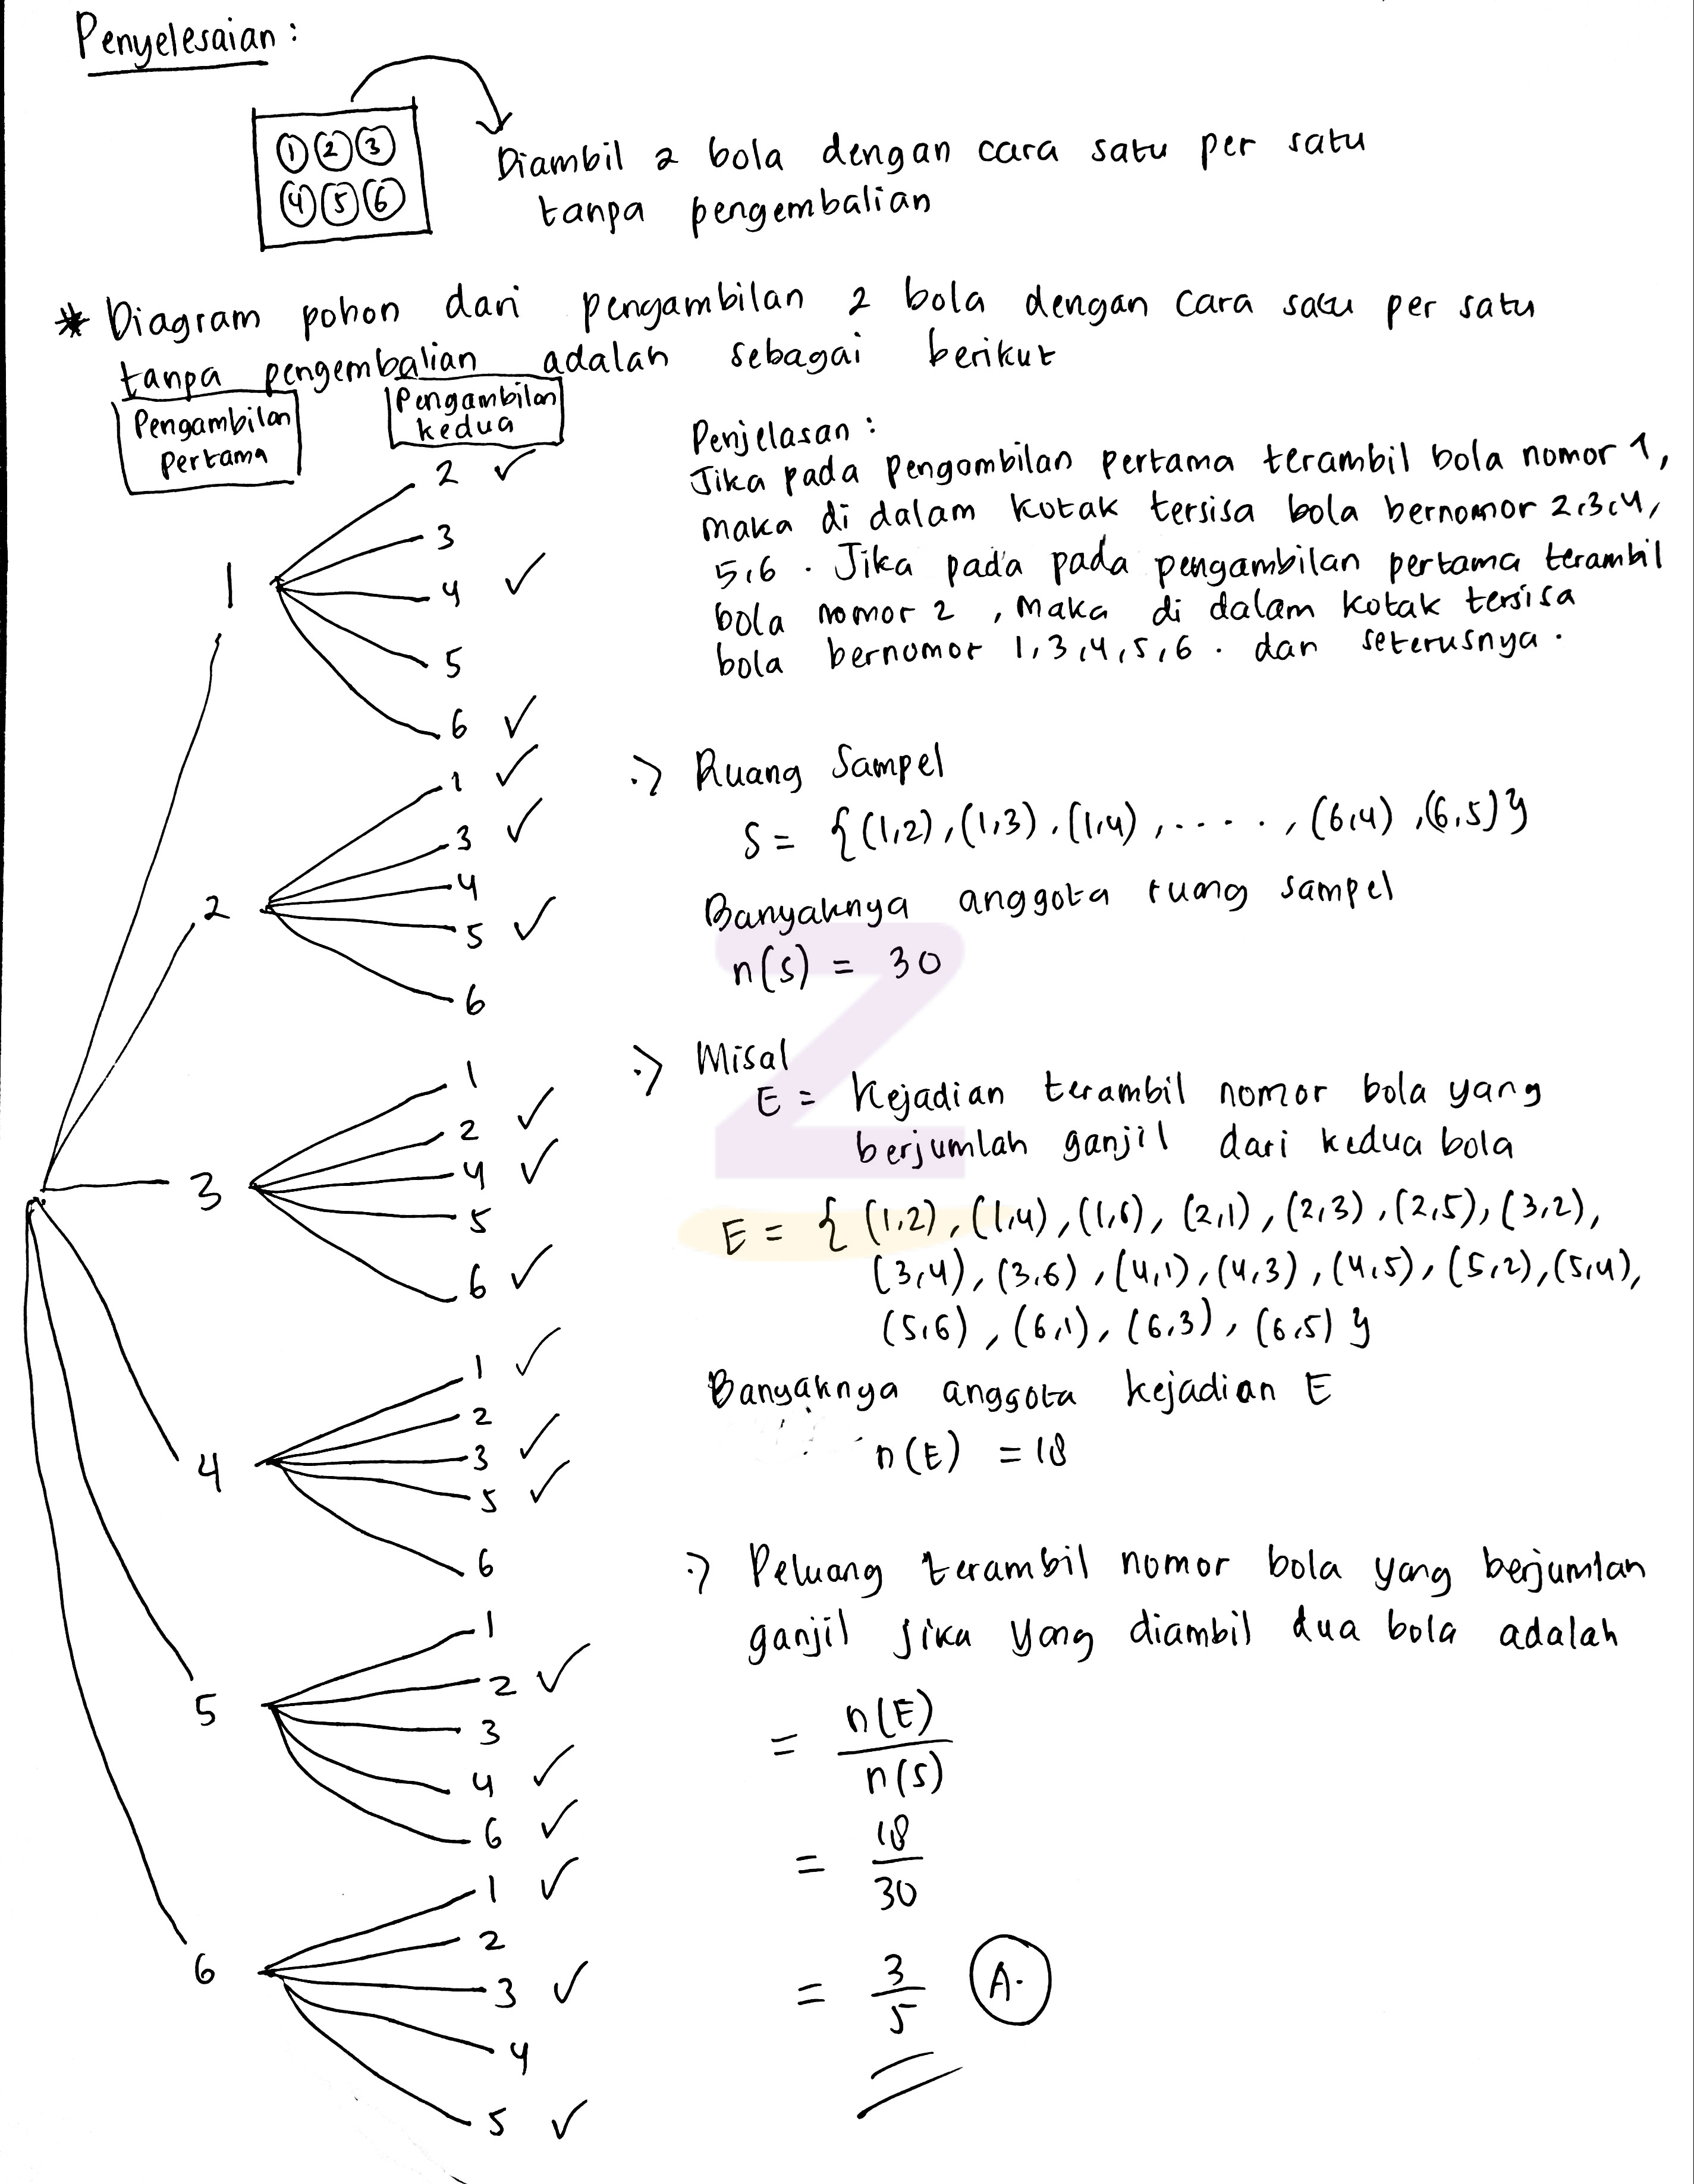 Penyelesaian :
1 2 3
4 5 6
Diambil 2 bola dengan cara satu per satu
tanpa pengembalian
* Diagram pohon dari pengambilan 2 bola dengan cara satu per satu
tanpa pengembalian adalah sebagai berikut
Pengambilan
Pertama
Pengambilan
kedua
1
2 ✓
3
4 ✓
5
6 ✓
2
1 ✓
3 ✓
4
5 ✓
6
3
1
2 ✓
4 ✓
5
6 ✓
4
1 ✓
2
3 ✓
5 ✓
6
5
1
2 ✓
3
4 ✓
6 ✓
6
1 ✓
2
3 ✓
4
5 ✓
Penjelasan :
Jika pada pengambilan pertama terambil bola nomor 1,
maka di dalam kotak tersisa bola bernomor 2,3,4,
5,6 . Jika pada pada pengambilan pertama terambil
bola nomor 2 , maka di dalam kotak tersisa
bola bernomor 1,3,4,5,6 . dan seterusnya .
:> Ruang Sampel
S = {(1,2),(1,3),(1,4),.....,(6,4),(6,5)}
Banyaknya anggota ruang sampel
n(S) = 30
:> Misal
E = Kejadian terambil nomor bola yang
berjumlah ganjil dari kedua bola
E = { (1,2),(1,4),(1,6),(2,1),(2,3),(2,5),(3,2),
(3,4),(3,6),(4,1),(4,3),(4,5),(5,2),(5,4),
(5,6),(6,1),(6,3),(6,5) }
Banyaknya anggota kejadian E
n(E) = 18
:> Peluang terambil nomor bola yang berjumlah
ganjil jika yang diambil dua bola adalah
= n(E)
n(S)
= 18
30
= 3
5
A.
Z